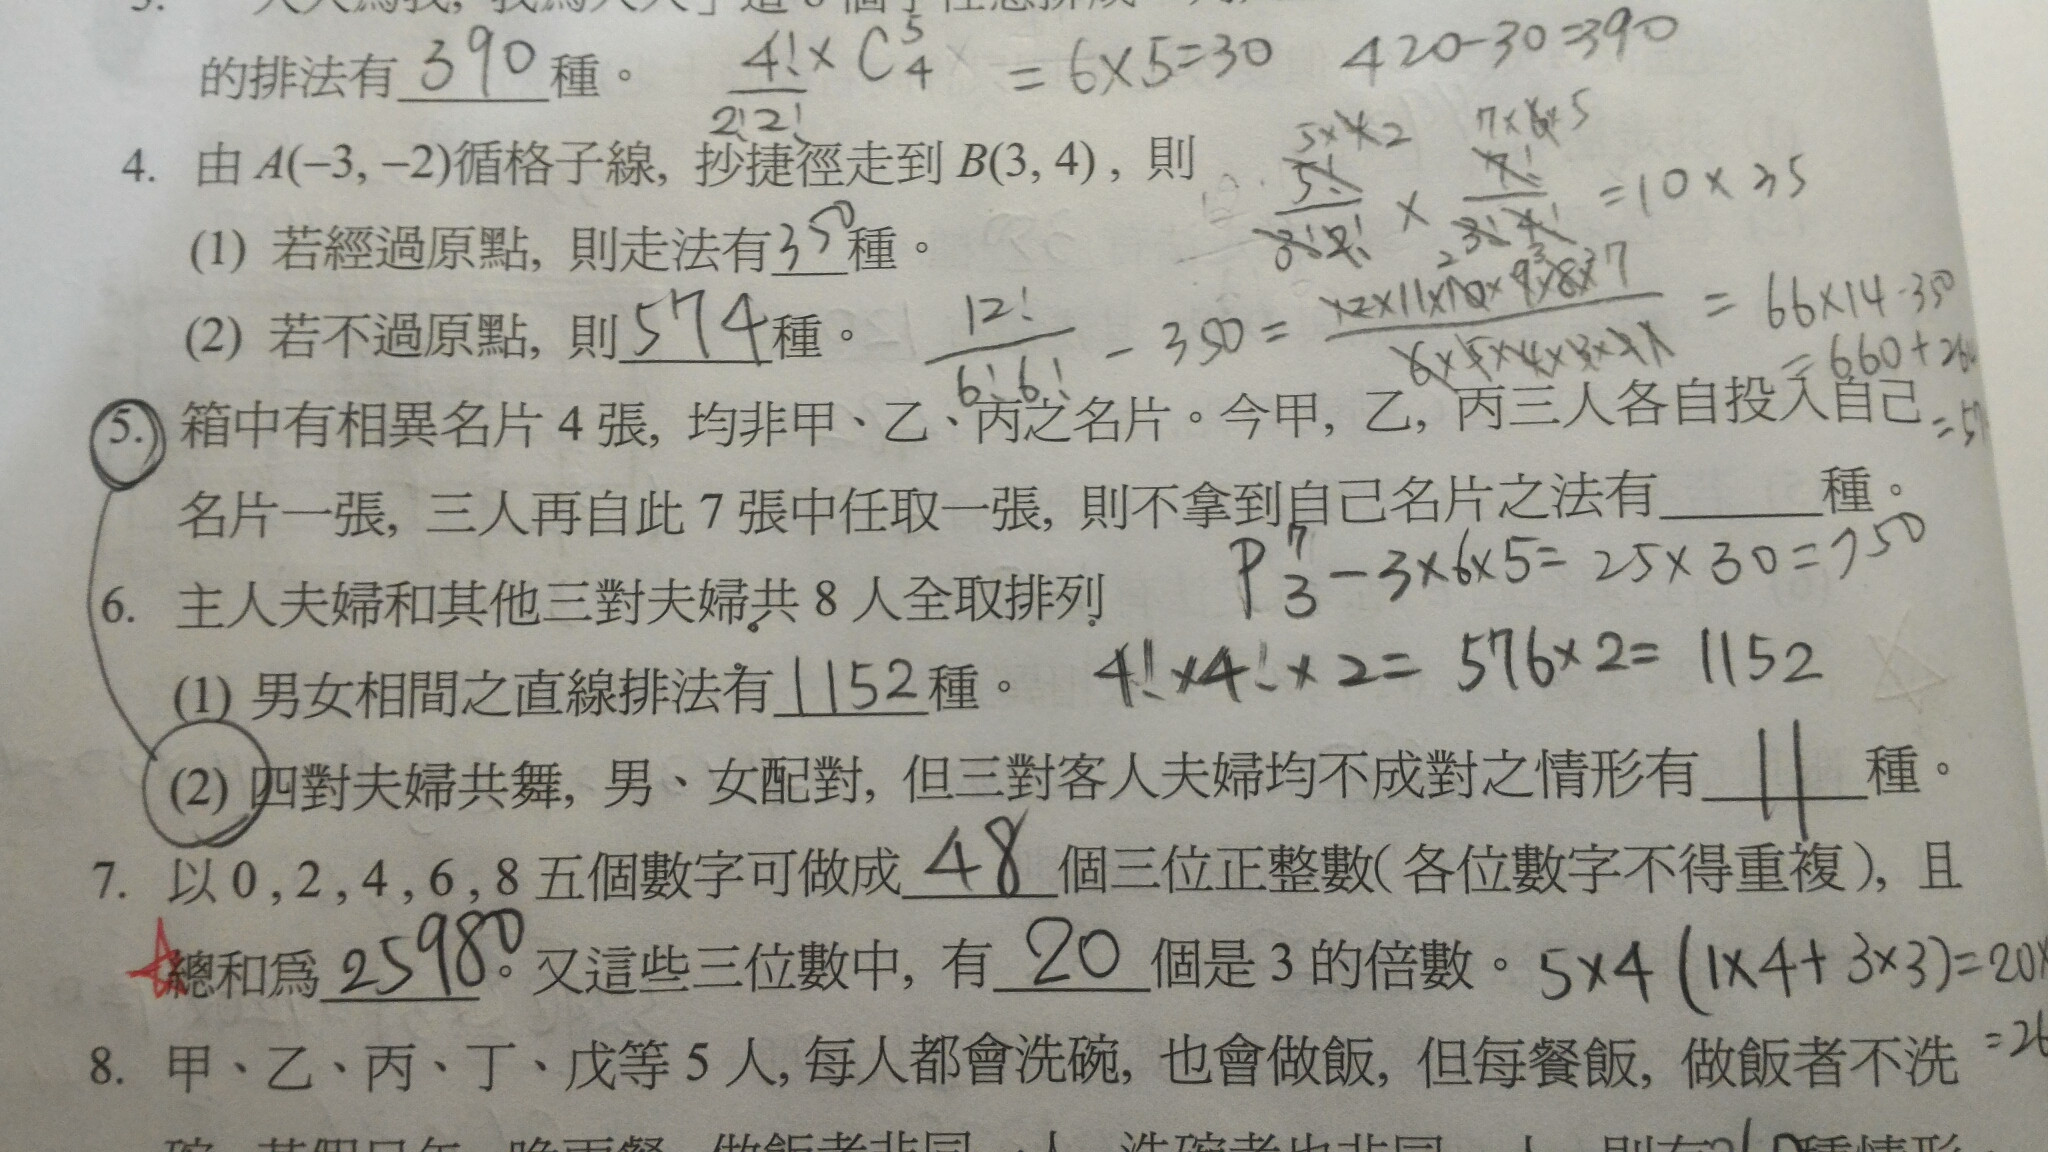 的排法有390種。 4!/2!2! × C⁵₄ = 6×5=30 420-30=390
4. 由 A(−3, −2)循格子線, 抄捷徑走到 B(3, 4) , 則
(1) 若經過原點, 則走法有350種。 5!/3!2! × 7!/3!4! =10×35
(2) 若不過原點, 則574種。 12!/6!6! - 350 = 12×11×10×9×8×7/6×5×4×3×2×1 = 66×14-350
5. 箱中有相異名片 4 張, 均非甲、乙、丙之名片。今甲, 乙, 丙三人各自投入自己
名片一張, 三人再自此 7 張中任取一張, 則不拿到自己名片之法有______種。
P⁷₃-3×6×5= 25×30=750
6. 主人夫婦和其他三對夫婦共 8 人全取排列
(1) 男女相間之直線排法有1152種。 4!×4!×2= 576×2= 1152
(2) 四對夫婦共舞, 男、女配對, 但三對客人夫婦均不成對之情形有11種。
7. 以 0 , 2 , 4 , 6 , 8 五個數字可做成48個三位正整數( 各位數字不得重複 ), 且
總和為25980。又這些三位數中, 有20個是 3 的倍數。 5×4(1×4+3×3)=20×
8. 甲、乙、丙、丁、戊等 5 人, 每人都會洗碗, 也會做飯, 但每餐飯, 做飯者不洗